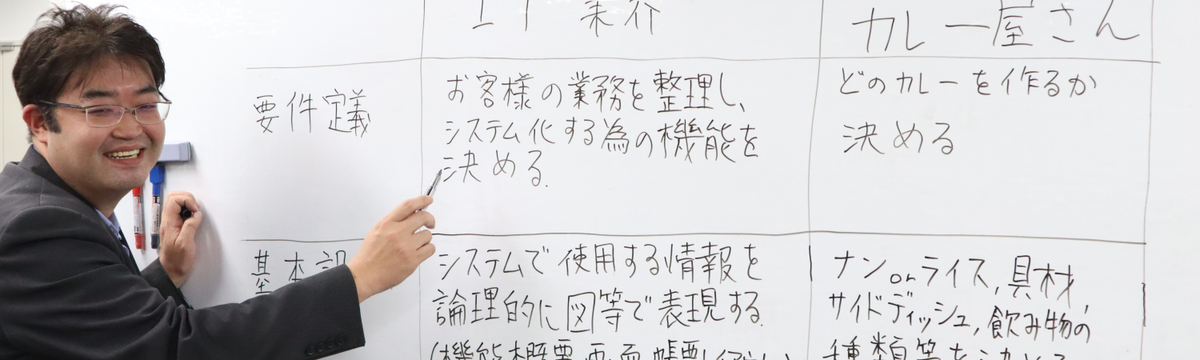 IT 業界
カレー屋さん
要件定義
お客様の業務を整理し、
システム化する為の機能を
決める.
どのカレーを作るか
決める
基本設
システムで使用する情報を
論理的に図等で表現する.
ナンorライス,具材,
サイドディッシュ,飲み物の
種類等を決める
(機能概要,画面,帳票